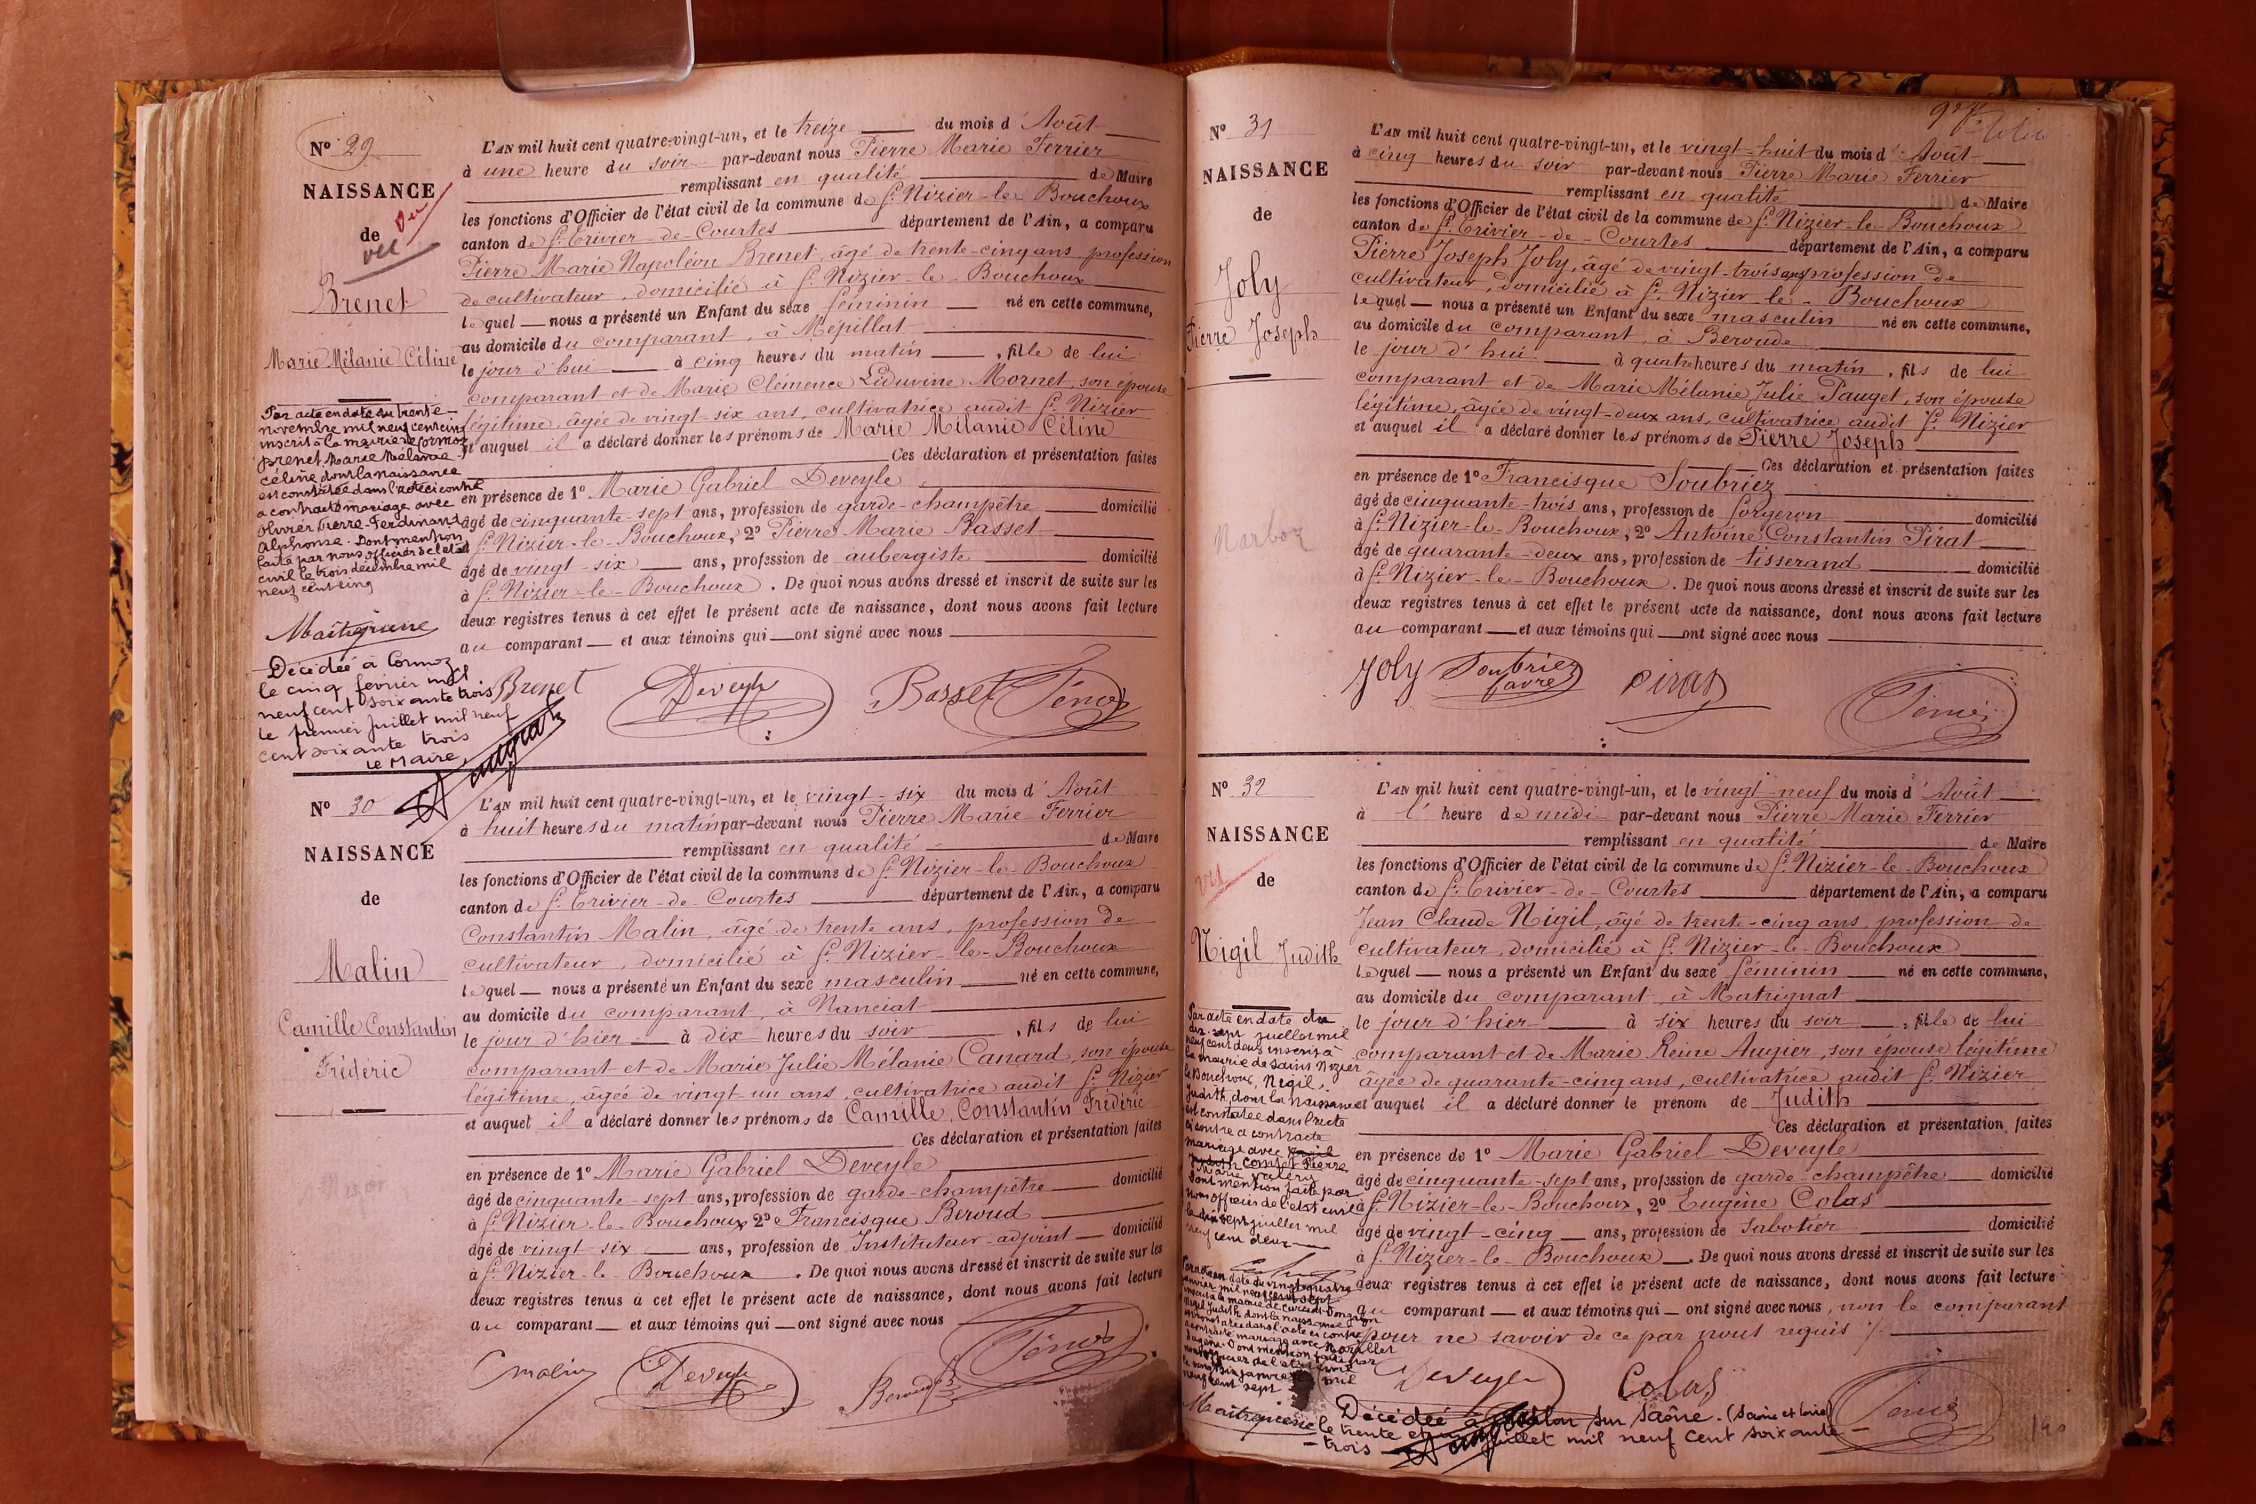 Nº 29
NAISSANCE
de
vu
Brenet
Marie Mélanie Céline
Par acte en date du trente
novembre mil neuf cent cinq
inscrit à la mairie de Cormoz
Brenet Marie Mélanie
Céline dont la naissance
est constatée dans l'acte ci contre
a contracté mariage avec
Olivier Pierre-Ferdinand
Alphonse. Dont mention
faite par nous officier de l'état
civil le trois décembre mil
neuf cent cinq
Décédée à Cormoz
le cinq février mil
neuf cent soixante trois
le premier juillet mil neuf
cent soixante trois
Le Maire
L'AN mil huit cent quatre-vingt-un, et le treize du mois d'Août
à une heure du soir par-devant nous Pierre Marie Ferrier
remplissant en qualité de Maire
les fonctions d'Officier de l'état civil de la commune de St Nizier-le-Bouchoux
canton de St Trivier-de-Courtes département de l'Ain, a comparu
Pierre Marie Napoléon Brenet, âgé de trente-cinq ans, profession
de cultivateur, domicilié à St Nizier-le-Bouchoux
lequel nous a présenté un Enfant du sexe féminin né en cette commune,
au domicile du comparant, à Mépillat
le jour d'hui à cinq heures du matin, fille de lui
comparant et de Marie Clémence Liduvine Mornet, son épouse
légitime, âgée de vingt-six ans, cultivatrice audit St Nizier
et auquel il a déclaré donner les prénoms de Marie Mélanie Céline
Ces déclaration et présentation faites
en présence de 1º Marie Gabriel Deveyle
âgé de cinquante-sept ans, profession de garde-champêtre domicilié
à St Nizier-le-Bouchoux, 2º Pierre Marie Basset
âgé de vingt-six ans, profession de aubergiste domicilié
à St Nizier-le-Bouchoux. De quoi nous avons dressé et inscrit de suite sur les
deux registres tenus à cet effet le présent acte de naissance, dont nous avons fait lecture
au comparant et aux témoins qui ont signé avec nous
Brenet Deveyle Basset
Nº 30
NAISSANCE
de
Malin
Camille Constantin
Frédéric
L'AN mil huit cent quatre-vingt-un, et le vingt-six du mois d'Août
à huit heures du matin par-devant nous Pierre Marie Ferrier
remplissant en qualité de Maire
les fonctions d'Officier de l'état civil de la commune de St Nizier-le-Bouchoux
canton de St Trivier-de-Courtes département de l'Ain, a comparu
Constantin Malin, âgé de trente ans, profession de
cultivateur, domicilié à St Nizier-le-Bouchoux
lequel nous a présenté un Enfant du sexe masculin né en cette commune,
au domicile du comparant, à Nanciat
le jour d'hier à dix heures du soir, fils de lui
comparant et de Marie Julie Mélanie Canard, son épouse
légitime, âgée de vingt-un ans, cultivatrice audit St Nizier
et auquel il a déclaré donner les prénoms de Camille Constantin Frédéric
Ces déclaration et présentation faites
en présence de 1º Marie Gabriel Deveyle
âgé de cinquante-sept ans, profession de garde-champêtre domicilié
à St Nizier-le-Bouchoux 2º Francisque Beroud
âgé de vingt-six ans, profession de Instituteur-adjoint domicilié
à St Nizier-le-Bouchoux. De quoi nous avons dressé et inscrit de suite sur les
deux registres tenus à cet effet le présent acte de naissance, dont nous avons fait lecture
au comparant et aux témoins qui ont signé avec nous
Malin Deveyle Beroud
Nº 31
NAISSANCE
de
Joly
Pierre Joseph
L'AN mil huit cent quatre-vingt-un, et le vingt-huit du mois d'Août
à cinq heures du soir par-devant nous Pierre Marie Ferrier
remplissant en qualité de Maire
les fonctions d'Officier de l'état civil de la commune de St Nizier-le-Bouchoux
canton de St Trivier-de-Courtes département de l'Ain, a comparu
Pierre Joseph Joly, âgé de vingt-trois ans profession de
cultivateur, domicilié à St Nizier-le-Bouchoux
lequel nous a présenté un Enfant du sexe masculin né en cette commune,
au domicile du comparant, à Beroude
le jour d'hui à quatre heures du matin, fils de lui
comparant et de Marie Mélanie Julie Pauget, son épouse
légitime, âgée de vingt-deux ans, cultivatrice audit St Nizier
et auquel il a déclaré donner les prénoms de Pierre Joseph
Ces déclaration et présentation faites
en présence de 1º Francisque Soubriez
âgé de cinquante-trois ans, profession de forgeron domicilié
à St Nizier-le-Bouchoux, 2º Antoine Constantin Pirat
âgé de quarante-deux ans, profession de tisserand domicilié
à St Nizier-le-Bouchoux. De quoi nous avons dressé et inscrit de suite sur les
deux registres tenus à cet effet le présent acte de naissance, dont nous avons fait lecture
au comparant et aux témoins qui ont signé avec nous
Joly Soubriez favre Pirat
Nº 32
NAISSANCE
vu
de
Nigil Judith
Par acte en date du
dix-sept juillet mil
neuf cent deux inscrit à
la mairie de Saint Nizier
le Bouchoux, Nigil
Judith, dont la naissance
est constatée dans l'acte
ci contre a contracté
mariage avec
Comtet Pierre
Marie Valéry
Dont mention faite par
nous officier de l'état civil
le dix sept juillet mil
neuf cent deux
date du vingt quatre
janvier mil neuf cent sept
Nigil Judith dont la naissance
est constatée dans l'acte ci contre
a contracté mariage avec
Dont mention faite par
nous officier de l'état civil
janvier mil
neuf cent sept
L'AN mil huit cent quatre-vingt-un, et le vingt-neuf du mois d'Août
à l'heure de midi par-devant nous Pierre Marie Ferrier
remplissant en qualité de Maire
les fonctions d'Officier de l'état civil de la commune de St Nizier-le-Bouchoux
canton de St Trivier-de-Courtes département de l'Ain, a comparu
Jean Claude Nigil, âgé de trente-cinq ans, profession de
cultivateur, domicilié à St Nizier-le-Bouchoux
lequel nous a présenté un Enfant du sexe féminin né en cette commune,
au domicile du comparant, à Matrignat
le jour d'hier à six heures du soir, fille de lui
comparant et de Marie Reine Augier, son épouse légitime
âgée de quarante-cinq ans, cultivatrice audit St Nizier
et auquel il a déclaré donner le prénom de Judith
Ces déclaration et présentation faites
en présence de 1º Marie Gabriel Deveyle
âgé de cinquante-sept ans, profession de garde-champêtre domicilié
à St Nizier-le-Bouchoux, 2º Eugène Colas
âgé de vingt-cinq ans, profession de Sabotier domicilié
à St Nizier-le-Bouchoux. De quoi nous avons dressé et inscrit de suite sur les
deux registres tenus à cet effet le présent acte de naissance, dont nous avons fait lecture
au comparant et aux témoins qui ont signé avec nous, non le comparant
pour ne savoir de ce par nous requis
Deveyle Colas
Décédée à Chalon sur Saône. (Saône et Loire)
le trente et un juillet mil neuf cent soixante
trois